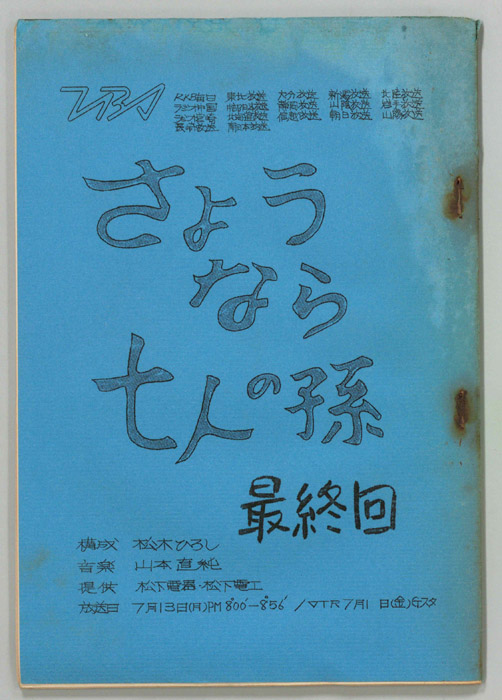 TBS
東北放送 大分放送 新潟放送 北陸放送
静岡放送 山陰放送 岩手放送
信越放送 朝日放送 山陽放送
長崎放送 熊本放送
さよう
なら
七人の孫
最終回
構成 松木ひろし
音楽 山本直純
提供 松下電器・松下電工
放送日 7月13日(月)PM 8°00'—8°56' /VTR 7月1 日(金)Gスタ